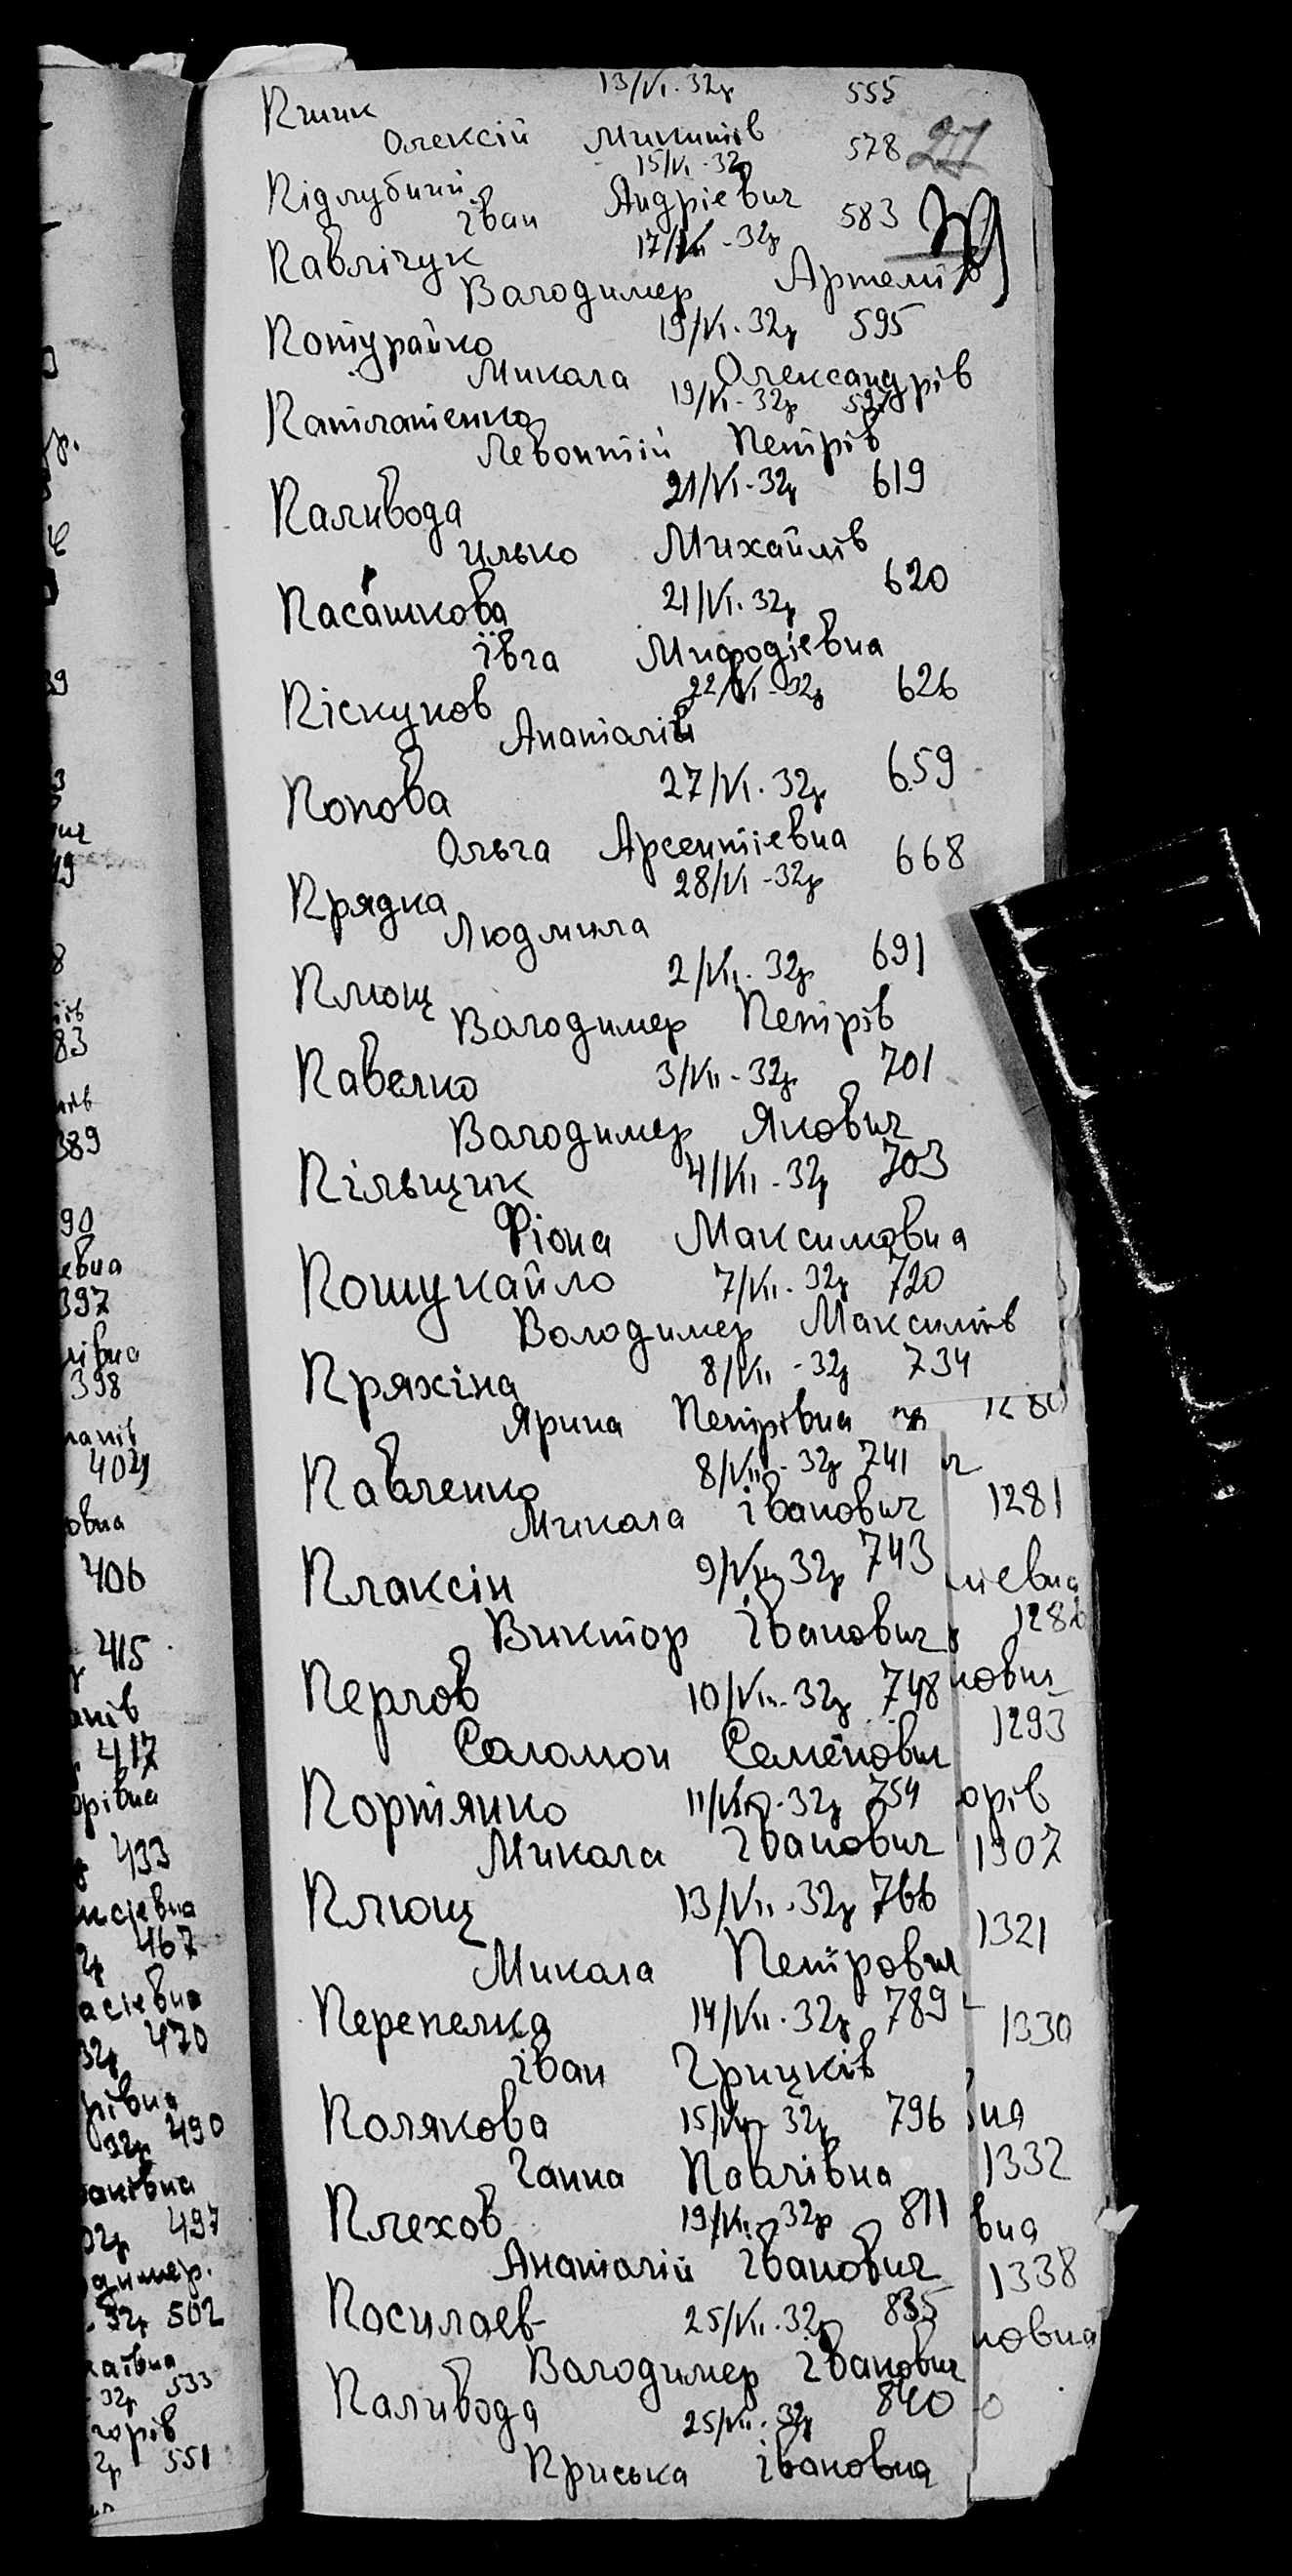 13/VI.32р 555
Олексій Микитів
15/VI-32р 578
27
Підлубний
Іван Андрієвич
17/VI-32р 583
Павлічук
Володимер Артемів
Потурайко 19/VI.32р 595
Микола Олександрів
Патлатенко 19/VI-32р 597
Левонтій Петрів
Паливода 21/VI-32р 619
Илько Михайлів
Пасашкова 21/VI.32р 620
Ївга Мифодієвна
Піскунов 22/VI-32р 626
Анатолій
Попова 27/VI.32р 659
Ольга Арсентієвна
Прядка 28/VI-32р 668
Людмила
Плющ 2/VII.32р 691
Володимер Петрів
Павелко 3/VII-32р 701
Володимер Якович
Пільщик 4/VII-32р 703
Фіона Максимовна
Пошукайло 7/VII.32р 720
Володимер Максимів
Пряхіна 8/VII-32р 734
Ярина Петрівна
Павленко 8/VII-32р 741
Микола Іванович
Плаксін 9/VII 32р 743
Виктор Іванович
Перлов 10/VII.32р 748
Соломон Семенович
Портянко 11/VII.32р 754
Микола Іванович
Плющ 13/VII.32р 766
Микола Петрович
Перепелка 14/VII.32р 789
Іван Грицків
Полякова 15/VII 32р 796
Ганна Павлівна
Плехов 19/VII-32р 811
Анатолій Іванович
Посилаев 25/VII.32р 835
Володимер Іванович
Паливода 25/VII.32р 840
Приська Івановна
1280
1281
1293
орів
1307
1321
1330
1332
вна
1338
новна
389
90
евна
397
398
402
овна
406
415
417
433
467
470
490
497
32р 502
32р 533
551